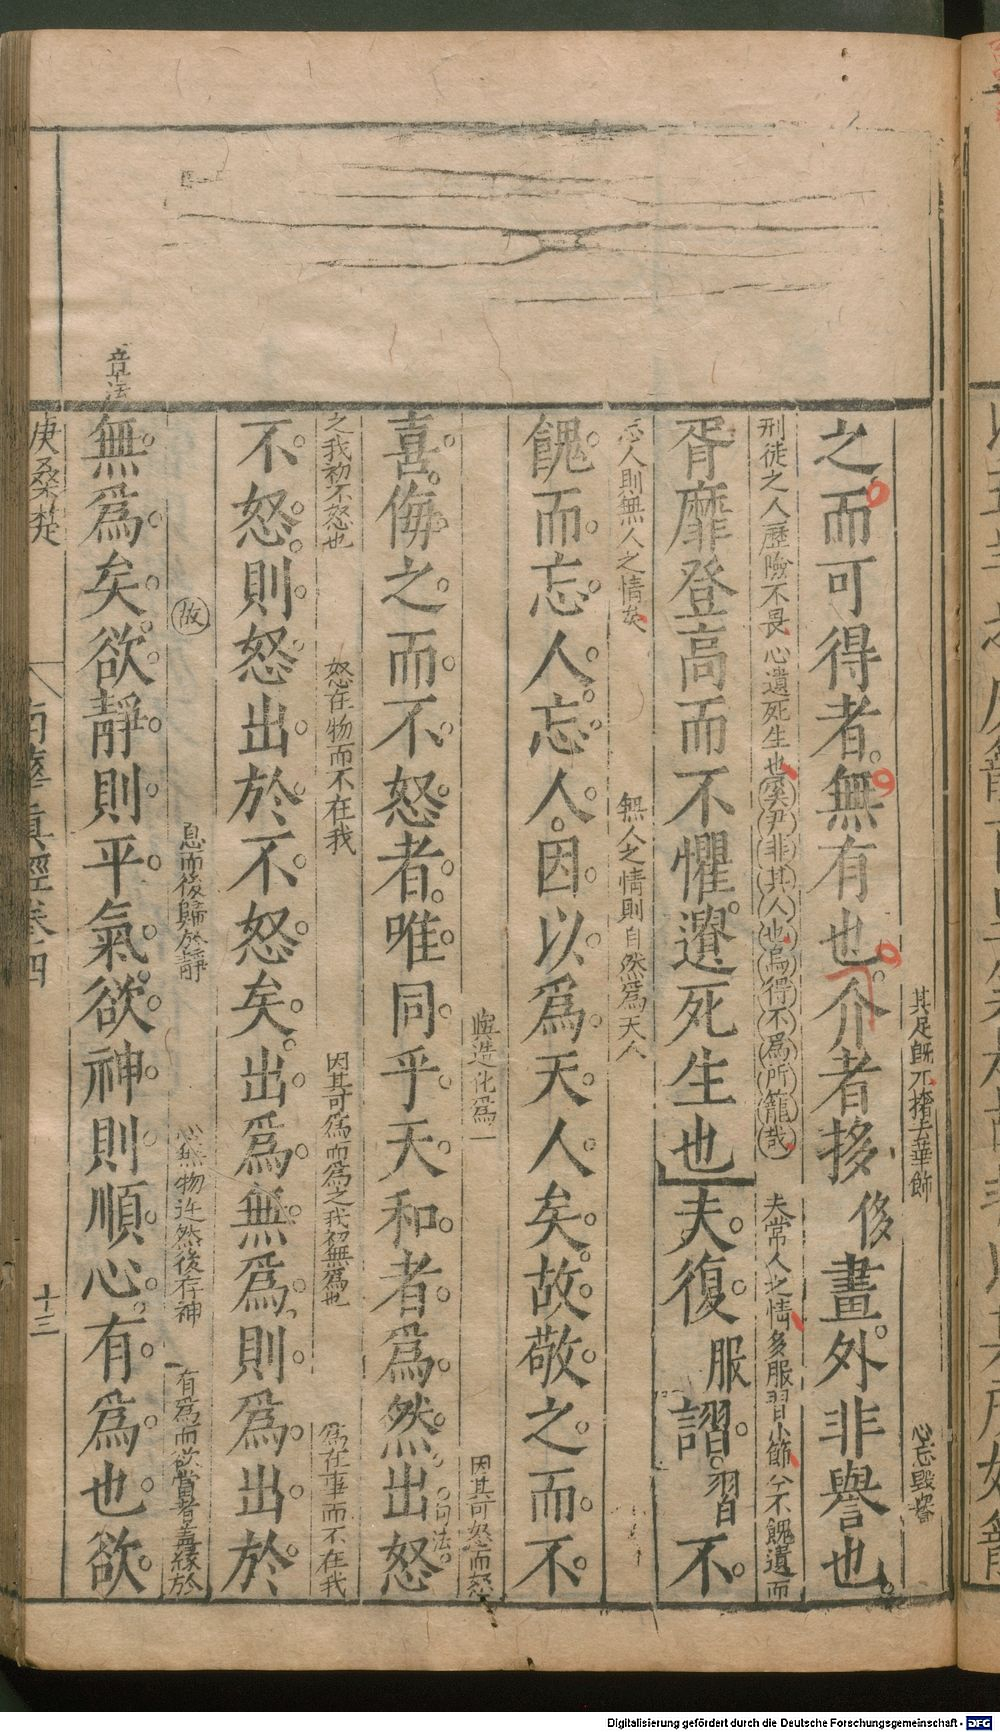 其足既刖
去華飾
心忘毀譽
之而可得者無有也介者拸侈畫外非譽也
刑徒之人歷險不畏心遺死生也
非其人也烏得不為所籠哉
夫常人之情多服習小節
不餽遺而
胥靡登高而不懼遺死生也夫復服謵習不
忘人則無人之情矣
無人之情則自然為天人
餽而忘人忘人因以為天人矣故敬之而不
與造化為一
因其可怒而怒
喜侮之而不怒者唯同乎天和者為然出怒
句法
之我初不怒也
怒在物而不在我
因其可為而為之我初無為也
為在事而不在我
不怒則怒出於不怒矣出為無為則為出於
故
息而後歸於靜
心無物迕然後存神
有為而欲當者蓋緣於
章法
無為矣欲靜則平氣欲神則順心有為也欲
庚桑楚
南華真經卷四
十三
Digitalisierung gefördert durch die Deutsche Forschungsgemeinschaft - DFG